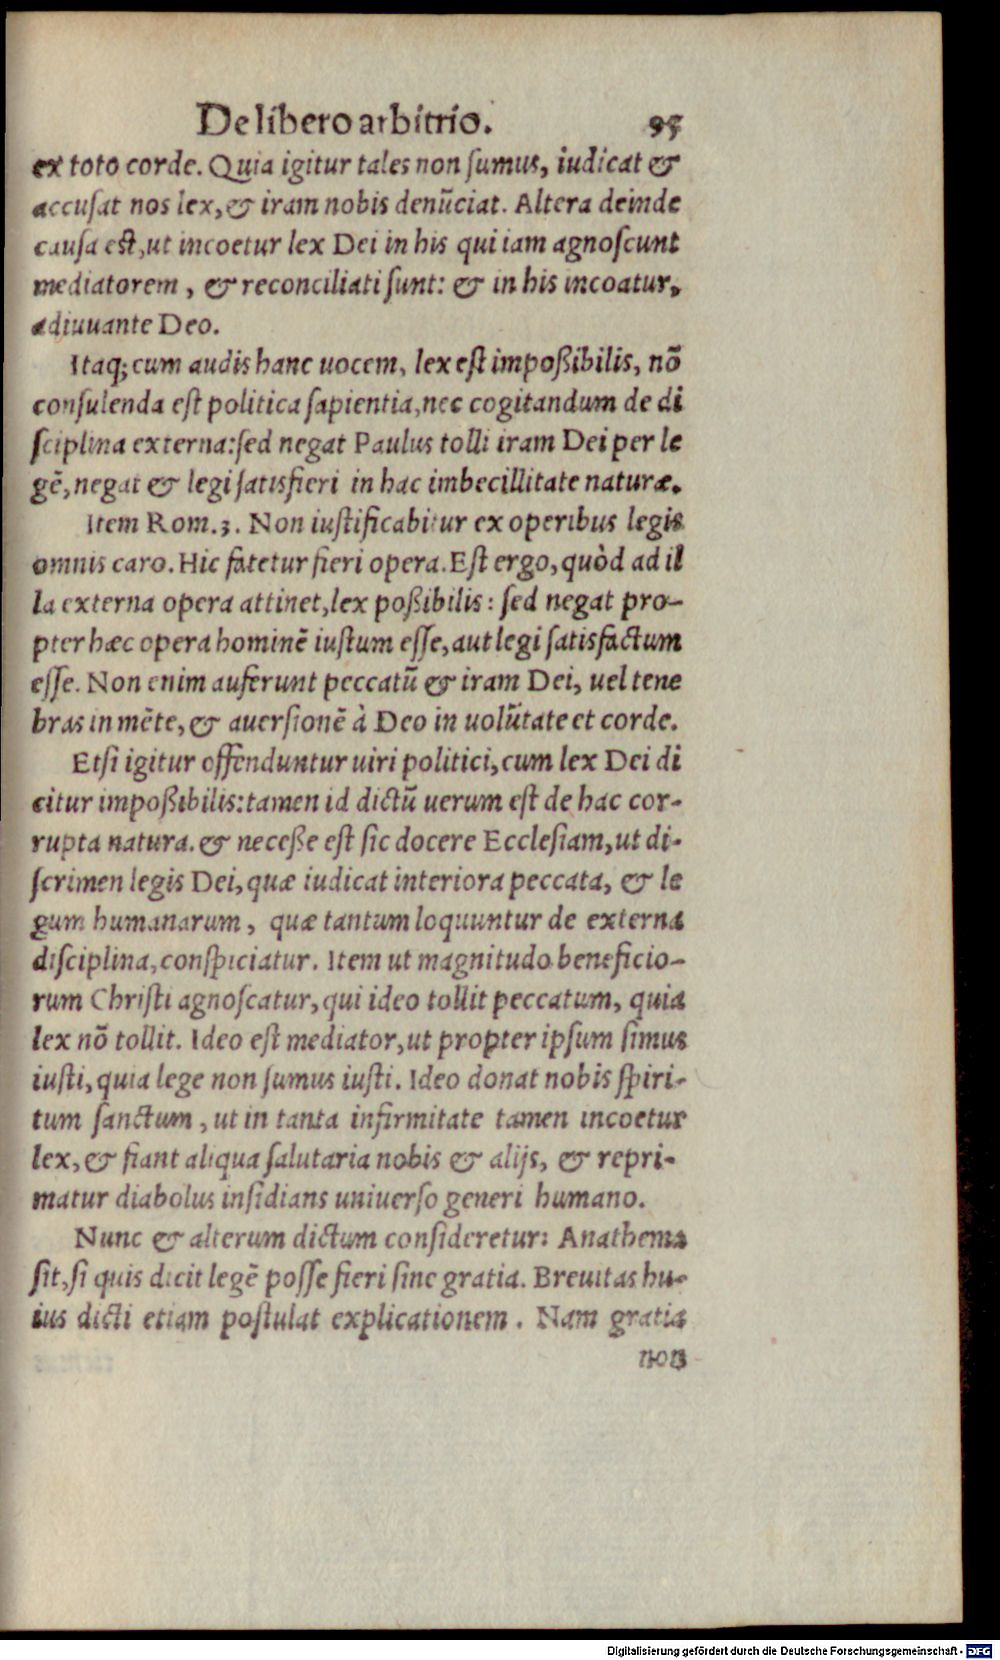 De libero arbitrio. 95
ex toto corde. Quia igitur tales non ſumus, iudicat &
accuſat nos lex, & iram nobis denūciat. Altera deinde
cauſa eſt, ut incoetur lex Dei in his qui iam agnoſcunt
mediatorem, & reconciliati ſunt: & in his incoatur,
adiuuante Deo.
Itaq; cum audis hanc uocem, lex eſt impoßibilis, nō
conſulenda eſt politica ſapientia, nec cogitandum de di
ſciplina externa: ſed negat Paulus tolli iram Dei per le
gē, negat & legi ſatisfieri in hac imbecillitate naturæ.
Item Rom. 3. Non iuſtificabitur ex operibus legis
omnis caro. Hic fatetur fieri opera. Eſt ergo, quòd ad il
la externa opera attinet, lex poßibilis: ſed negat pro-
pter hæc opera hominē iuſtum eſſe, aut legi ſatisfactum
eſſe. Non enim auferunt peccatū & iram Dei, uel tene
bras in mēte, & auerſionē à Deo in uolūtate et corde.
Etſi igitur offenduntur uiri politici, cum lex Dei di
citur impoßibilis: tamen id dictū uerum eſt de hac cor-
rupta natura. & neceße eſt ſic docere Eccleſiam, ut di-
ſcrimen legis Dei, quæ iudicat interiora peccata, & le
gum humanarum, quæ tantum loquuntur de externa
diſciplina, conſpiciatur. Item ut magnitudo beneficio-
rum Chriſti agnoſcatur, qui ideo tollit peccatum, quia
lex nō tollit. Ideo eſt mediator, ut propter ipſum ſimus
iuſti, quia lege non ſumus iuſti. Ideo donat nobis ſpiri-
tum ſanctum, ut in tanta infirmitate tamen incoetur
lex, & fiant aliqua ſalutaria nobis & alijs, & repri-
matur diabolus inſidians uniuerſo generi humano.
Nunc & alterum dictum conſideretur: Anathema
ſit, ſi quis dicit legē poſſe fieri ſine gratia. Breuitas hu-
ius dicti etiam poſtulat explicationem. Nam gratia
non
Digitalisierung gefördert durch die Deutsche Forschungsgemeinschaft - DFG